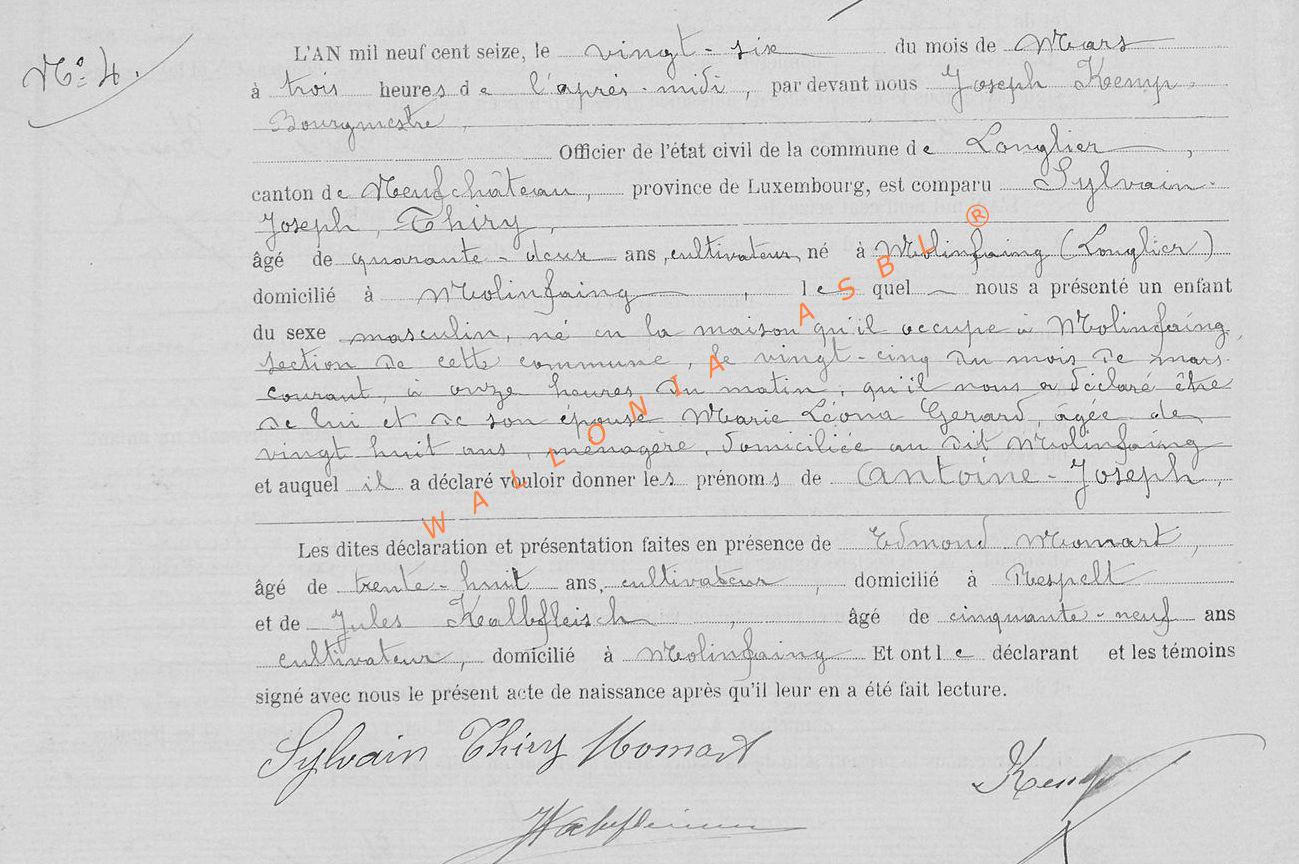 N°: 4.
L'AN mil neuf cent seize, le vingt-six du mois de Mars
à trois heures de l'après-midi, par devant nous Joseph Kemp,
Bourgmestre,
Officier de l'état civil de la commune de Longlier,
canton de Neufchâteau, province de Luxembourg, est comparu Sylvain-
Joseph, Thiry,
âgé de quarante-deux ans, cultivateur, né à Molinfaing (Longlier)
domicilié à Molinfaing, lesquel nous a présenté un enfant
du sexe masculin, né en la maison qu'il occupe à Molinfaing,
section de cette commune, le vingt-cinq du mois de mars
courant, à onze heures du matin, qu'il nous a déclaré être
de lui et de son épouse Marie Léona Gerard, agée de
vingt huit ans, ménagère, domiciliée au dit Molinfaing
et auquel il a déclaré vouloir donner les prénoms de Antoine-Joseph,
Les dites déclaration et présentation faites en présence de Edmond Momart,
âgé de trente-huit ans, cultivateur, domicilié à Respelt
et de Jules Kalbfleisch, âgé de cinquante-neuf ans
cultivateur, domicilié à Molinfaing Et ont le déclarant et les témoins
signé avec nous le présent acte de naissance après qu'il leur en a été fait lecture.
Sylvain Thiry Momart
Kemp
WALLONIA ASBL ®